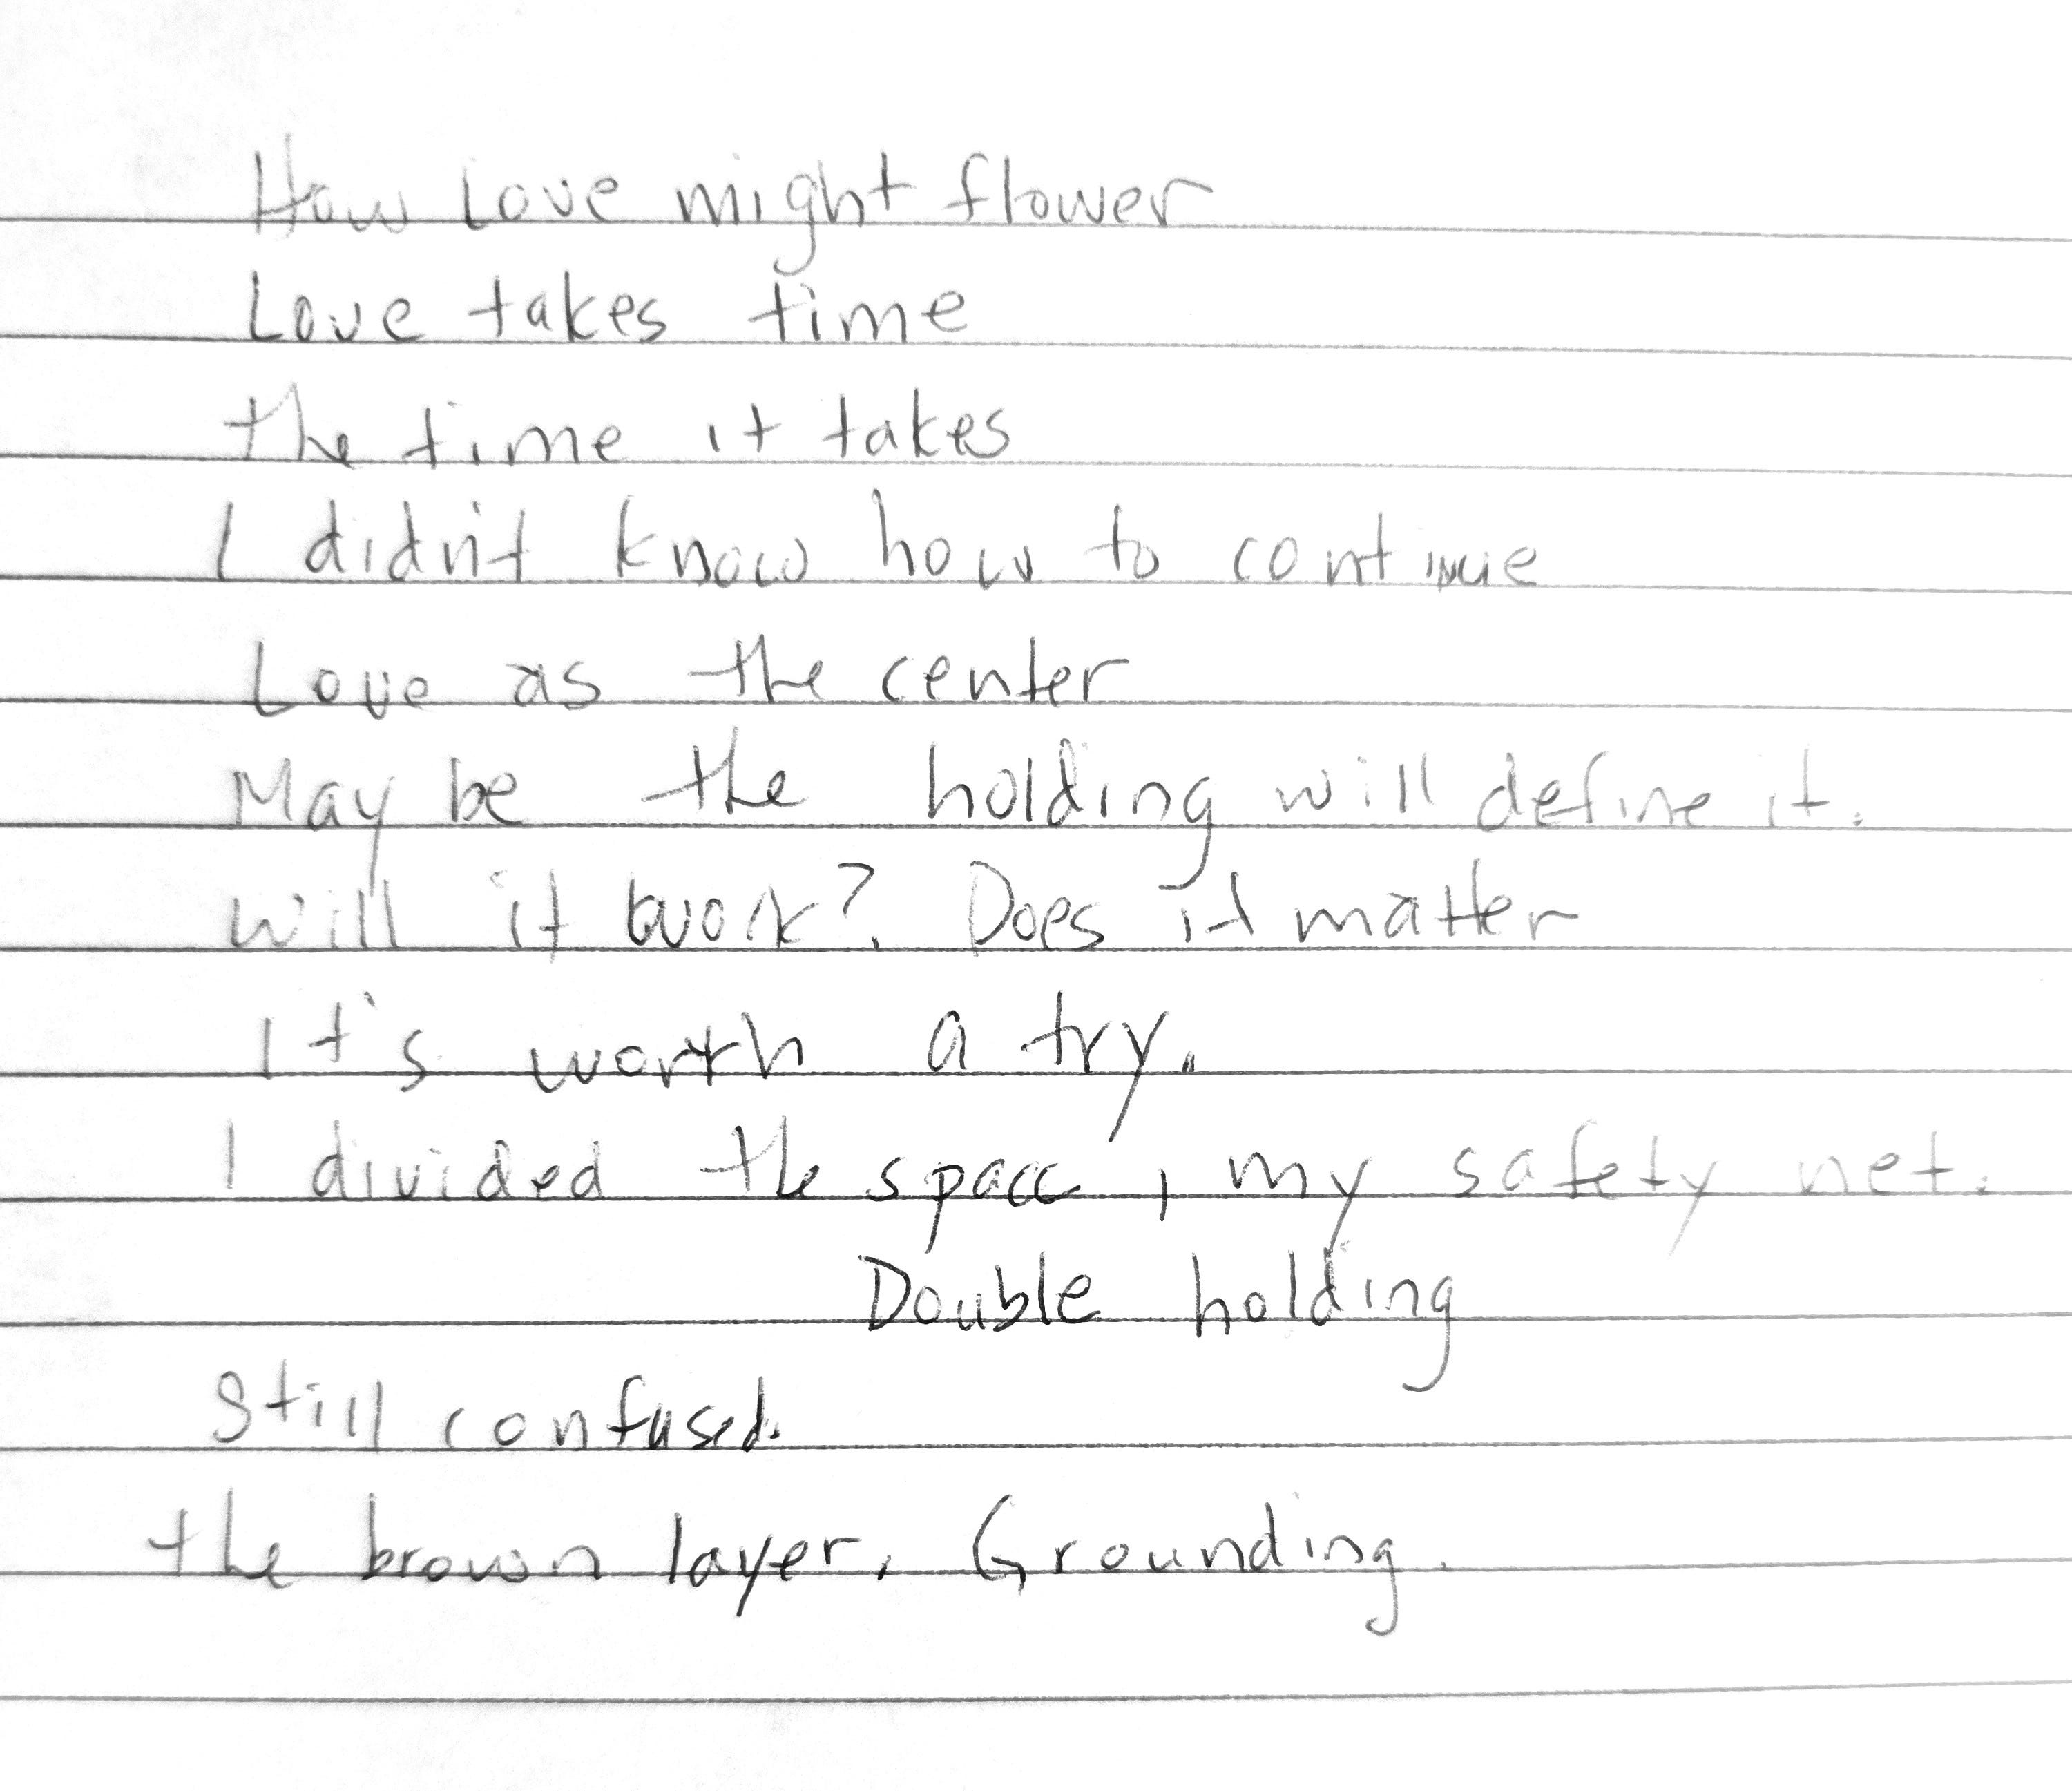 How Love might flower
Love takes time
the time it takes
I didn't know how to continue
Love as the center
May be the holding will define it.
Will it work? Does it matter
It's worth a try.
I divided the space, my safety net.
Double holding
Still confused.
the brown layer. Grounding.